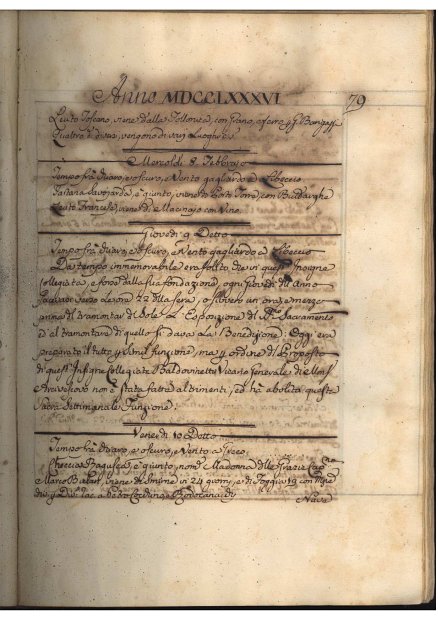 Anno MDCCLXXXVI
79
Leuto Toscano, viene dalla Follonica, con Grano, e ferro, p G. B.
Quattro d. detto, vengono di varj Luoghi.
Mercoldi 8. Febbrajo
Tempo frà chiaro, e oscuro, e Vento gagliardo a Libeccio
Tartana Savojarda è giunto, viene da Porto Torre, con
Leuto Francese, viene di Macinajo con Vino.
Giovedi 9 Detto
Tempo frà chiaro, e oscuro, e Vento gagliardo a Libeccio
Da tempo immemorabile era solito che in quest' Insigne
Collegiata, e forsi dalla sua fondazione, ogni Giovedi dell Anno
facevasi verso le ore 22 della sera, o sivvero un ora, e mezzo
prima del tramontar del Sole La Esposizione del SS. Sacramento
ed al tramontare di quello si dava La Benedizione: Oggi era
preparato il tutto p simil funzione, ma p ordine del Proposto
di quest' Insigne Collegiata Baldovinetti Vicario Generale di Mons.
Arcivescovo non è stata fatta altrimenti, ed hà abolita questa
Sacra Settimanale Funzione.
Venerdi 10 Detto
Tempo frà chiaro, e oscuro, e Vento a Greco.
Checcia Ragusea è giunto, nom. Madonna delle Grazie Cap.no
Marco viene da Smirne in 24 giorni, e di Foggia 19 con
die p Div. fac. a Pietro e
Nave